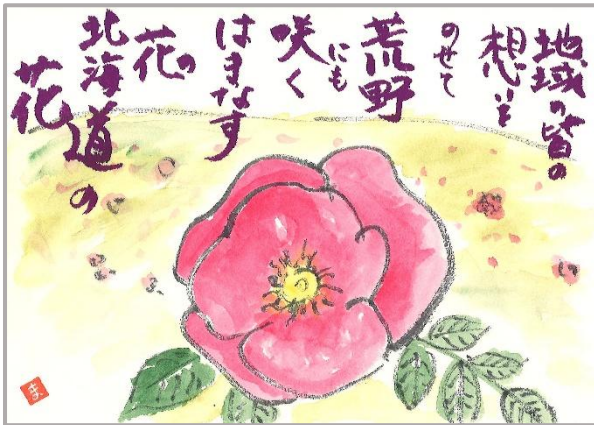 地域の皆の
想いを
のせて
荒野
にも
咲く
はまなす
花の
北海道の
花
ま